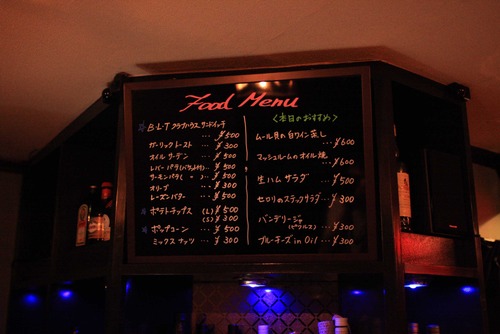 Food Menu
B・L・T クラブハウス サンドイッチ
… ¥500
ガーリックトースト … ¥300
オイル サーデン … ¥500
レバーパテ(バケット付)‥ ¥500
サーモンパテ( 〃 )‥ ¥500
オリーブ … ¥300
レーズンバター … ¥500
ポテトチップス (L) ¥500
(S) ¥300
ポップコーン … ¥500
ミックスナッツ … ¥300
<本日のおすすめ>
ムール貝の白ワイン蒸し
… ¥600
マッシュルームのオイル焼
… ¥600
生ハムサラダ … ¥500
セロリのスティックサラダ
… ¥300
バンデリージャ
(ピクルス) … ¥300
ブルーチーズ in Oil … ¥300